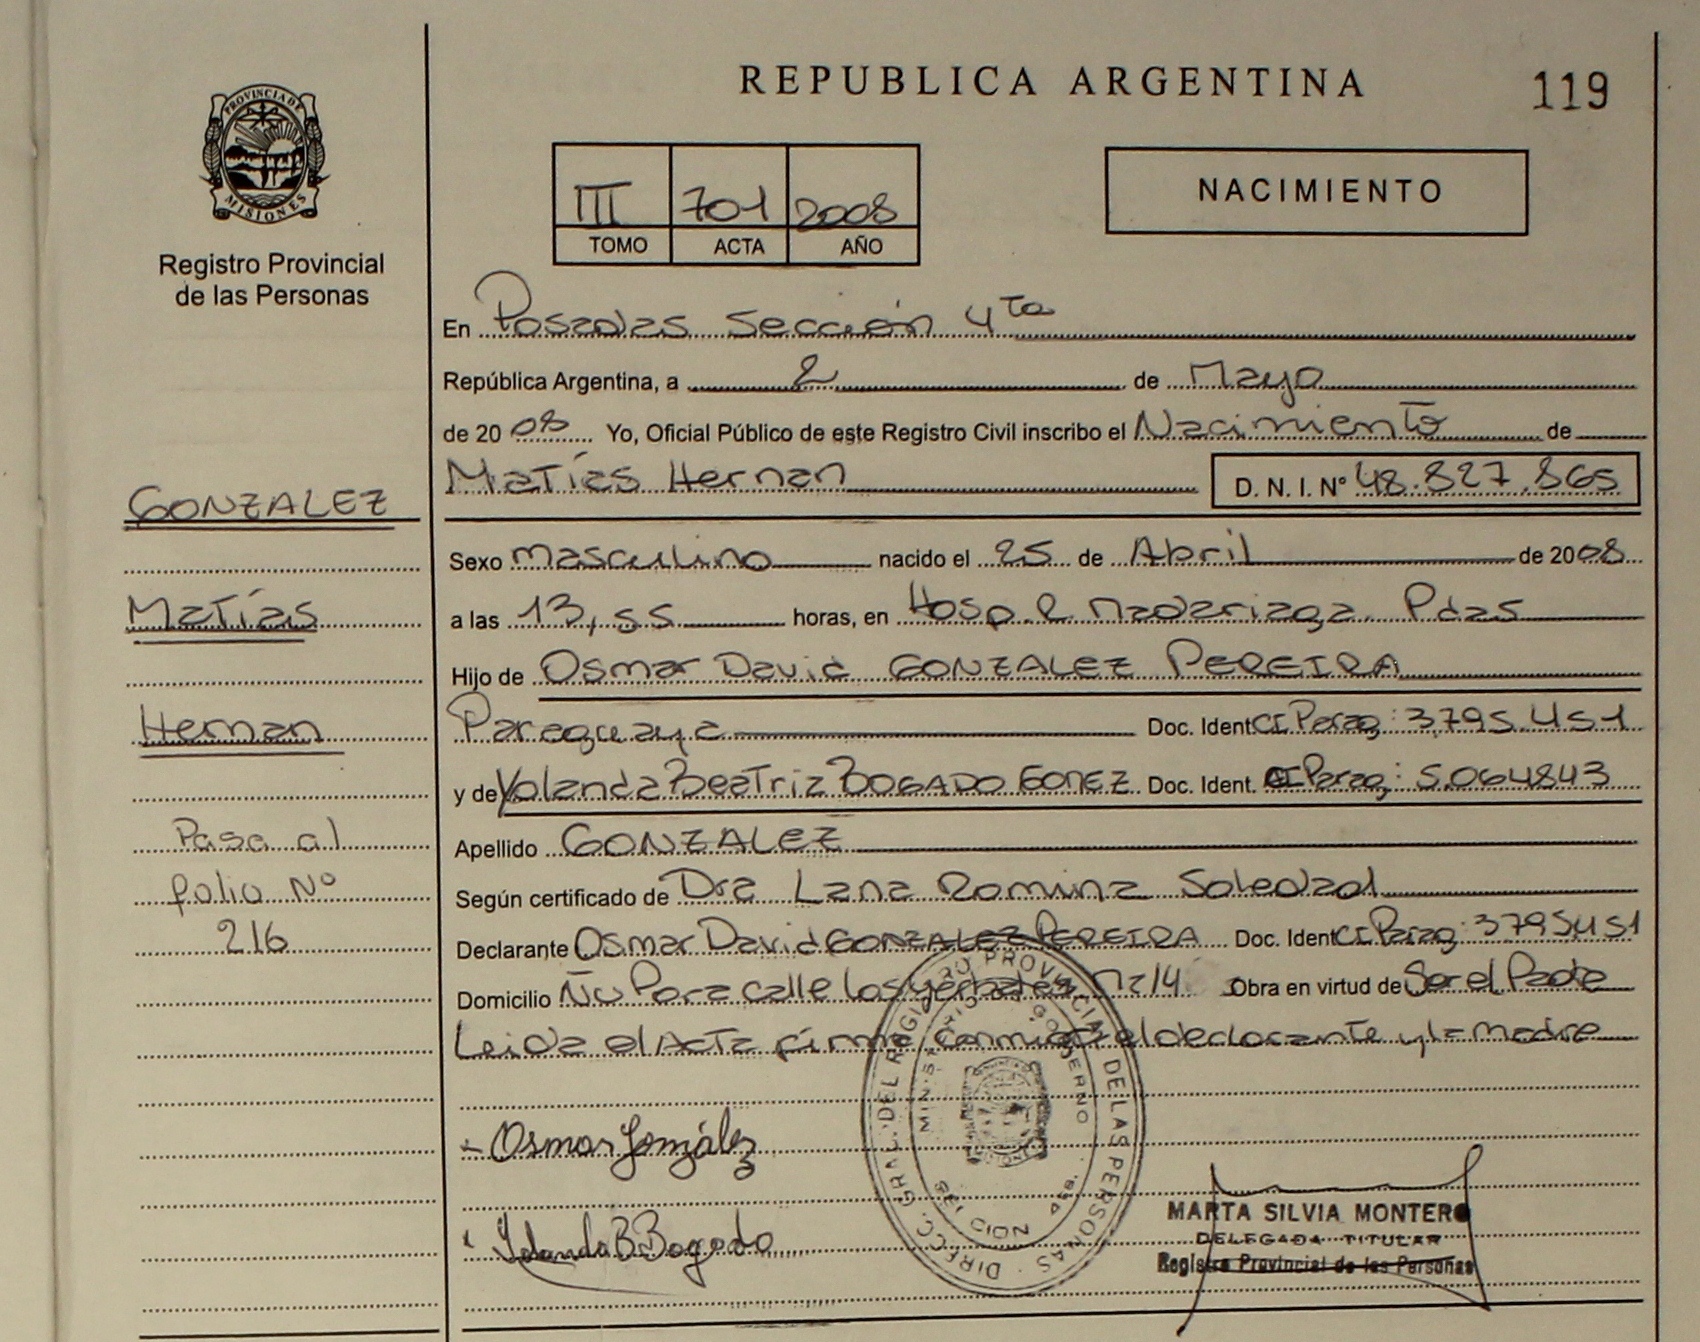 REPUBLICA ARGENTINA
119
PROVINCIA DE
MISIONES
Registro Provincial
de las Personas
III 701 2008
TOMO ACTA AÑO
NACIMIENTO
En Posadas Sección 4ta
República Argentina, a 2 de Mayo
de 2008 Yo, Oficial Público de este Registro Civil inscribo el Nacimiento de
Matías Hernan D. N. I. N° 48.827.865
GONZALEZ
Matías
Hernan
Pasa al
folio N°
216
Sexo masculino nacido el 25 de Abril de 2008
a las 13,55 horas, en Hosp. R Madariaga. Pdas
Hijo de Osmar David GONZALEZ PEREIRA
Paraguaya Doc. Ident CI Parag: 3.795.451
y de Yolanda Beatriz BOGADO GOMEZ Doc. Ident. CI Parag: 5.064843
Apellido GONZALEZ
Según certificado de Dra Lana Romina Soledad
Declarante Osmar David GONZALEZ PEREIRA Doc. Ident CI Parag: 3795451
Domicilio Ñu Pora calle Los yerbales Mz 14 Obra en virtud de Ser el Padre
Leida el Acta firma conmigo el declarante y la madre
Osmar González
Yolanda B Bogado
DIRECC. GRAL. DEL REGISTRO PROVINCIAL DE LAS PERSONAS
GOBIERNO
MARTA SILVIA MONTERO
DELEGADA TITULAR
Registro Provincial de las Personas